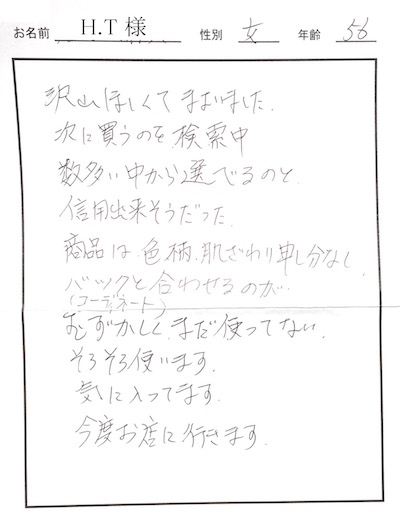 お名前 H.T 様 性別 女 年齢 56
沢山ほしくてまよいました.
次に買うのを検索中
数多い中から選べるのと.
信用出来そうだった.
商品は、色柄、肌ざわり申し分なし.
バックと合わせるのが
(コーデネート)
むずかしく、まだ使ってない.
そろそろ使います.
気に入ってます.
今度お店に行きます.